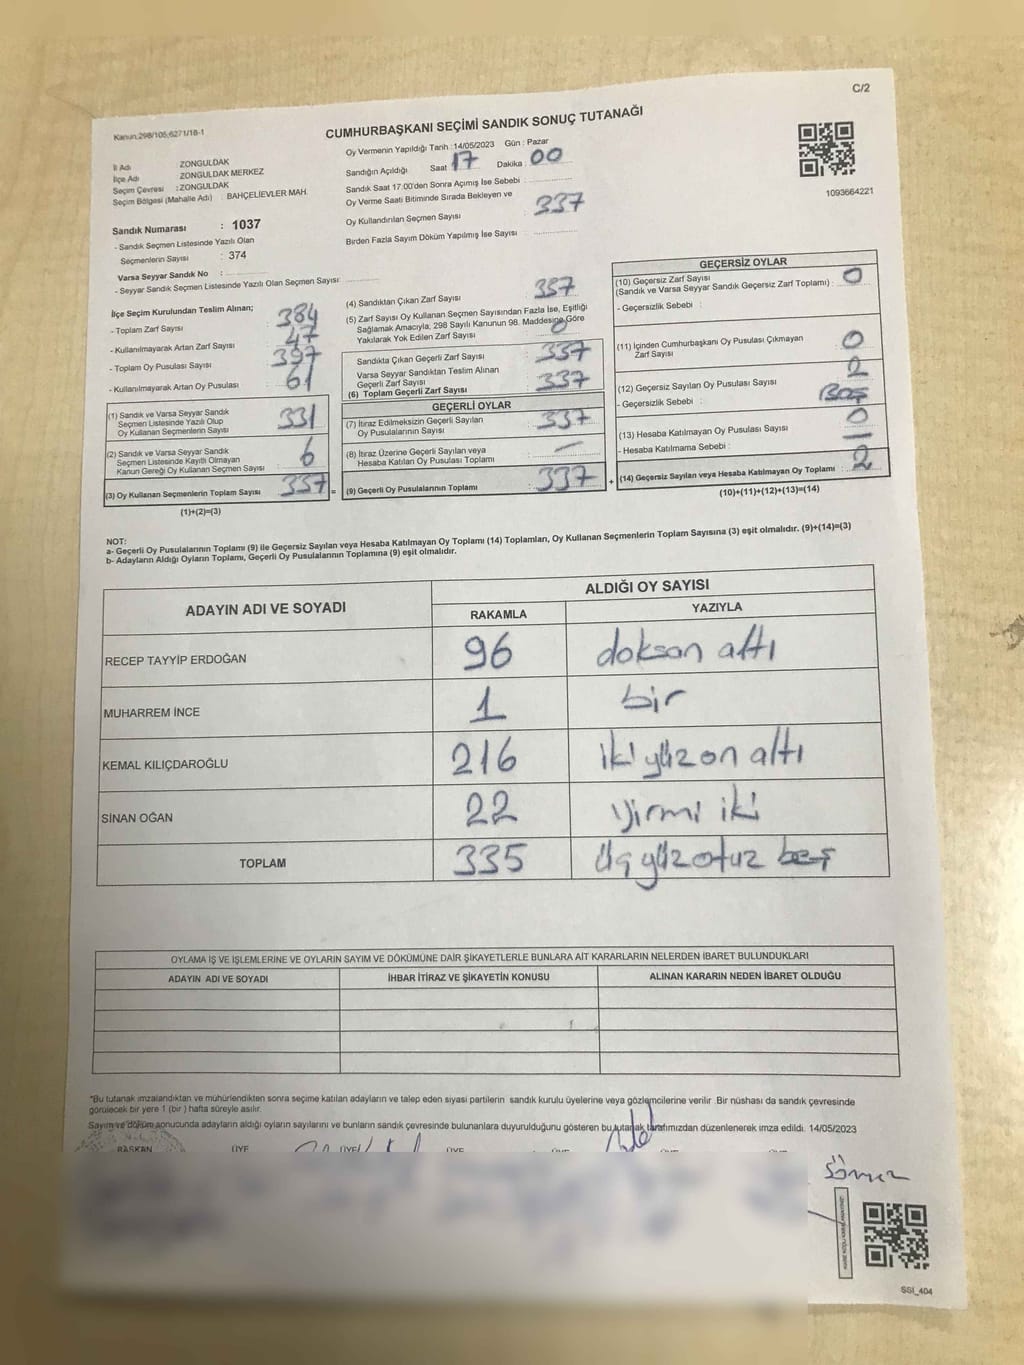 C/2
Kanun:298/105;6271/18-1
CUMHURBAŞKANI SEÇİMİ SANDIK SONUÇ TUTANAĞI
İl Adı : ZONGULDAK
İlçe Adı : ZONGULDAK MERKEZ
Seçim Çevresi : ZONGULDAK
Seçim Bölgesi (Mahalle Adı) : BAHÇELİEVLER MAH.
Oy Vermenin Yapıldığı Tarih : 14/05/2023 Gün : Pazar
Sandığın Açıldığı Saat : 17 Dakika : 00
Sandık Saat 17:00'den Sonra Açımış İse Sebebi :
Oy Verme Saati Bitiminde Sırada Bekleyen ve
Oy Kullandırılan Seçmen Sayısı : 337
Birden Fazla Sayım Döküm Yapılmış İse Sayısı :
1093664221
Sandık Numarası : 1037
- Sandık Seçmen Listesinde Yazılı Olan
Seçmenlerin Sayısı : 374
Varsa Seyyar Sandık No :
- Seyyar Sandık Seçmen Listesinde Yazılı Olan Seçmen Sayısı :
İlçe Seçim Kurulundan Teslim Alınan;
- Toplam Zarf Sayısı : 384
- Kullanılmayarak Artan Zarf Sayısı : 47
- Toplam Oy Pusulası Sayısı : 397
- Kullanılmayarak Artan Oy Pusulası : 61
(1) Sandık ve Varsa Seyyar Sandık
Seçmen Listesinde Yazılı Olup
Oy Kullanan Seçmenlerin Sayısı : 331
(2) Sandık ve Varsa Seyyar Sandık
Seçmen Listesinde Kayıtlı Olmayan
Kanun Gereği Oy Kullanan Seçmen Sayısı : 6
(3) Oy Kullanan Seçmenlerin Toplam Sayısı : 337
(1)+(2)=(3)
(4) Sandıktan Çıkan Zarf Sayısı : 337
(5) Zarf Sayısı Oy Kullanan Seçmen Sayısından Fazla İse, Eşitliği
Sağlamak Amacıyla; 298 Sayılı Kanunun 98. Maddesine Göre
Yakılarak Yok Edilen Zarf Sayısı : 0
Sandıkta Çıkan Geçerli Zarf Sayısı : 337
Varsa Seyyar Sandıktan Teslim Alınan
Geçerli Zarf Sayısı
(6) Toplam Geçerli Zarf Sayısı : 337
GEÇERLİ OYLAR
(7) İtiraz Edilmeksizin Geçerli Sayılan
Oy Pusulalarının Sayısı : 337
(8) İtiraz Üzerine Geçerli Sayılan veya
Hesaba Katılan Oy Pusulası Toplamı : —
= (9) Geçerli Oy Pusulalarının Toplamı : 337
GEÇERSİZ OYLAR
(10) Geçersiz Zarf Sayısı
(Sandık ve Varsa Seyyar Sandık Geçersiz Zarf Toplamı) : 0
- Geçersizlik Sebebi :
(11) İçinden Cumhurbaşkanı Oy Pusulası Çıkmayan
Zarf Sayısı : 0
(12) Geçersiz Sayılan Oy Pusulası Sayısı : 2
- Geçersizlik Sebebi : Boş
(13) Hesaba Katılmayan Oy Pusulası Sayısı : 0
- Hesaba Katılmama Sebebi : —
+ (14) Geçersiz Sayılan veya Hesaba Katılmayan Oy Toplamı : 2
(10)+(11)+(12)+(13)=(14)
NOT:
a- Geçerli Oy Pusulalarının Toplamı (9) ile Geçersiz Sayılan veya Hesaba Katılmayan Oy Toplamı (14) Toplamları, Oy Kullanan Seçmenlerin Toplam Sayısına (3) eşit olmalıdır. (9)+(14)=(3)
b- Adayların Aldığı Oyların Toplamı, Geçerli Oy Pusulalarının Toplamına (9) eşit olmalıdır.
ADAYIN ADI VE SOYADI ALDIĞI OY SAYISI
RAKAMLA YAZIYLA
RECEP TAYYİP ERDOĞAN 96 doksan altı
MUHARREM İNCE 1 bir
KEMAL KILIÇDAROĞLU 216 iki yüz on altı
SİNAN OĞAN 22 yirmi iki
TOPLAM 335 üç yüz otuz beş
OYLAMA İŞ VE İŞLEMLERİNE VE OYLARIN SAYIM VE DÖKÜMÜNE DAİR ŞİKAYETLERLE BUNLARA AİT KARARLARIN NELERDEN İBARET BULUNDUKLARI
ADAYIN ADI VE SOYADI İHBAR İTİRAZ VE ŞİKAYETİN KONUSU ALINAN KARARIN NEDEN İBARET OLDUĞU
*Bu tutanak imzalandıktan ve mühürlendikten sonra seçime katılan adayların ve talep eden siyasi partilerin sandık kurulu üyelerine veya gözlemcilerine verilir. Bir nüshası da sandık çevresinde
görülecek bir yere 1 (bir) hafta süreyle asılır.
Sayım ve döküm sonucunda adayların aldığı oyların sayılarını ve bunların sandık çevresinde bulunanlara duyurulduğunu gösteren bu tutanak tarafımızdan düzenlenerek imza edildi. 14/05/2023
BAŞKAN ÜYE ÜYE ÜYE ÜYE ÜYE ÜYE
SSI_404